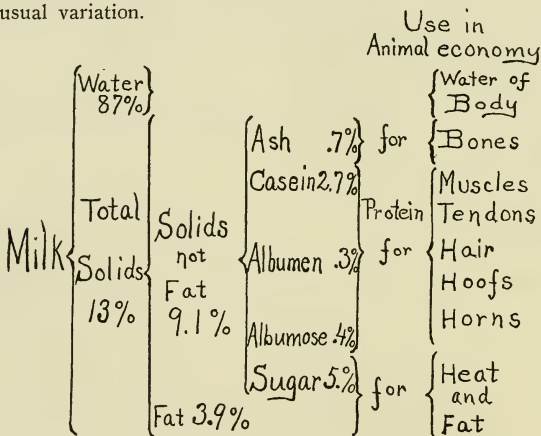 usual variation.
Use in
Animal economy
Milk
Water
87%
Total
Solids
13%
Solids
not
Fat
9.1%
Fat 3.9%
Ash .7%
Casein 2.7%
Albumen .3%
Albumose .4%
Sugar 5.%
for
Protein
for
for
Water of
Body
Bones
Muscles
Tendons
Hair
Hoofs
Horns
Heat
and
Fat